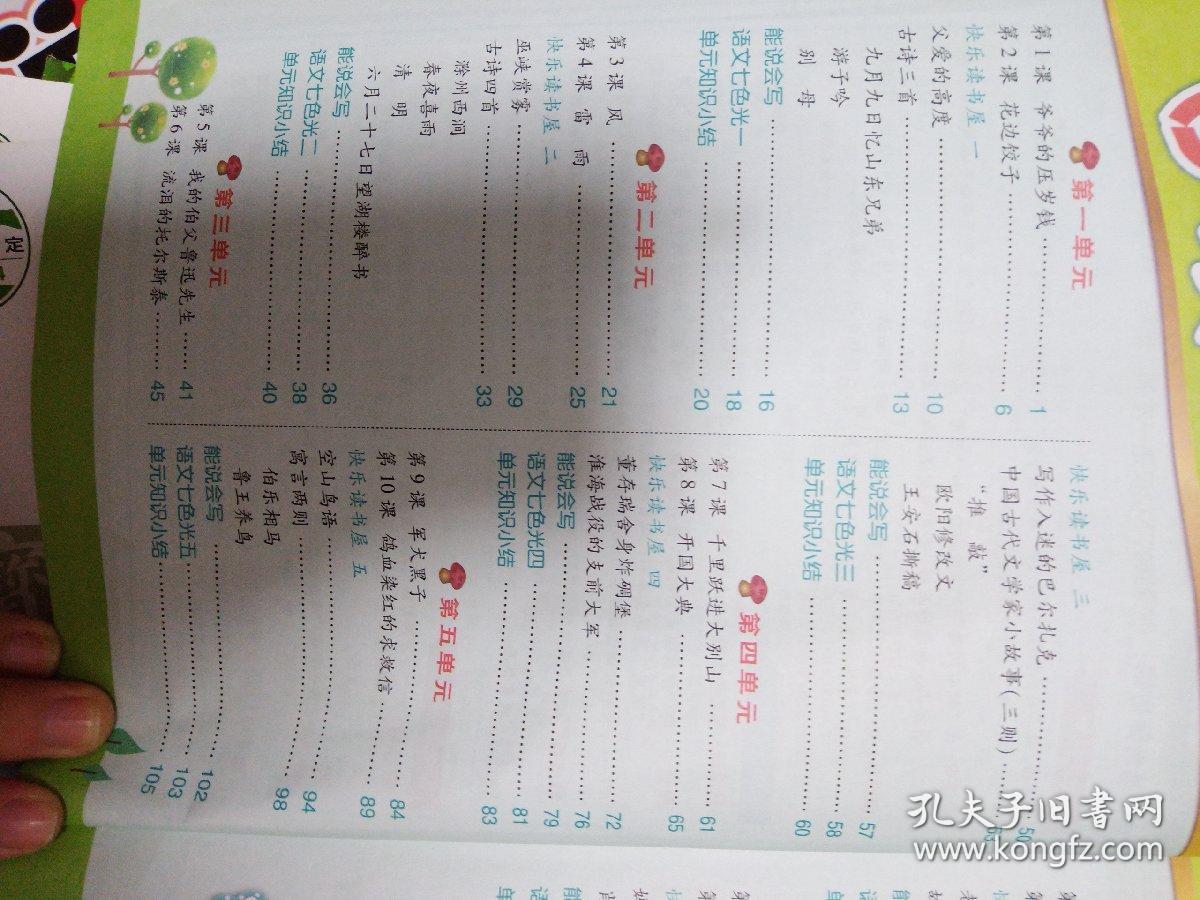 第一单元
第1课 爷爷的压岁钱 1
第2课 花边饺子 6
快乐读书屋 一
父爱的高度 10
古诗三首 13
九月九日忆山东兄弟
游子吟
别 母
能说会写 16
语文七色光一 18
单元知识小结 20
第二单元
第3课 风 21
第4课 雷 雨 25
快乐读书屋 二
巫峡赏雾 29
古诗四首 33
滁州西涧
春夜喜雨
清 明
六月二十七日望湖楼醉书
能说会写 36
语文七色光二 38
单元知识小结 40
第三单元
第5课 我的伯父鲁迅先生 41
第6课 流泪的托尔斯泰 45
快乐读书屋 三
写作入迷的巴尔扎克 50
中国古代文学家小故事(三则)
“推 敲”
欧阳修改文
王安石撕稿
能说会写 57
语文七色光三 58
单元知识小结 60
第四单元
第7课 千里跃进大别山 61
第8课 开国大典 65
快乐读书屋 四
董存瑞舍身炸碉堡 72
淮海战役的支前大军 76
能说会写 79
语文七色光四 81
单元知识小结 83
第五单元
第9课 军犬黑子 84
第10课 鸽血染红的求救信 89
快乐读书屋 五
空山鸟语 94
寓言两则 98
伯乐相马
鲁王养鸟
能说会写 102
语文七色光五 103
单元知识小结 105
孔夫子旧书网
www.kongfz.com